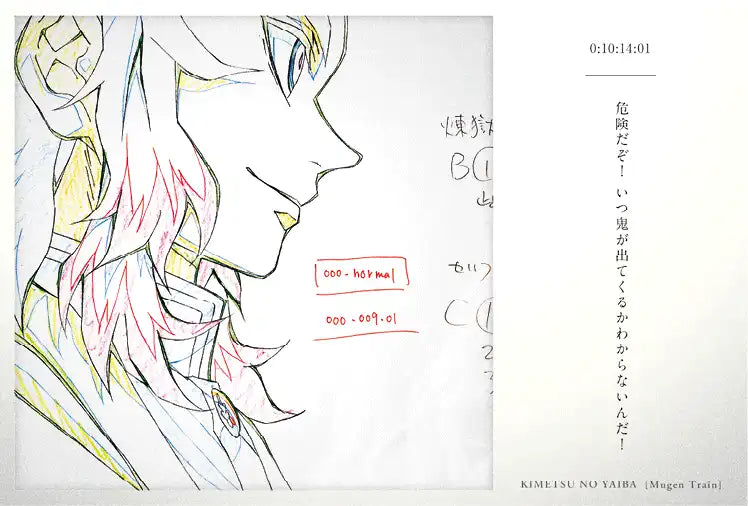 煉獄
B①
セリフ
C①
2
000-normal
000-009.01
0:10:14:01
危険だぞ！いつ鬼が出てくるかわからないんだ！
KIMETSU NO YAIBA [Mugen Train]